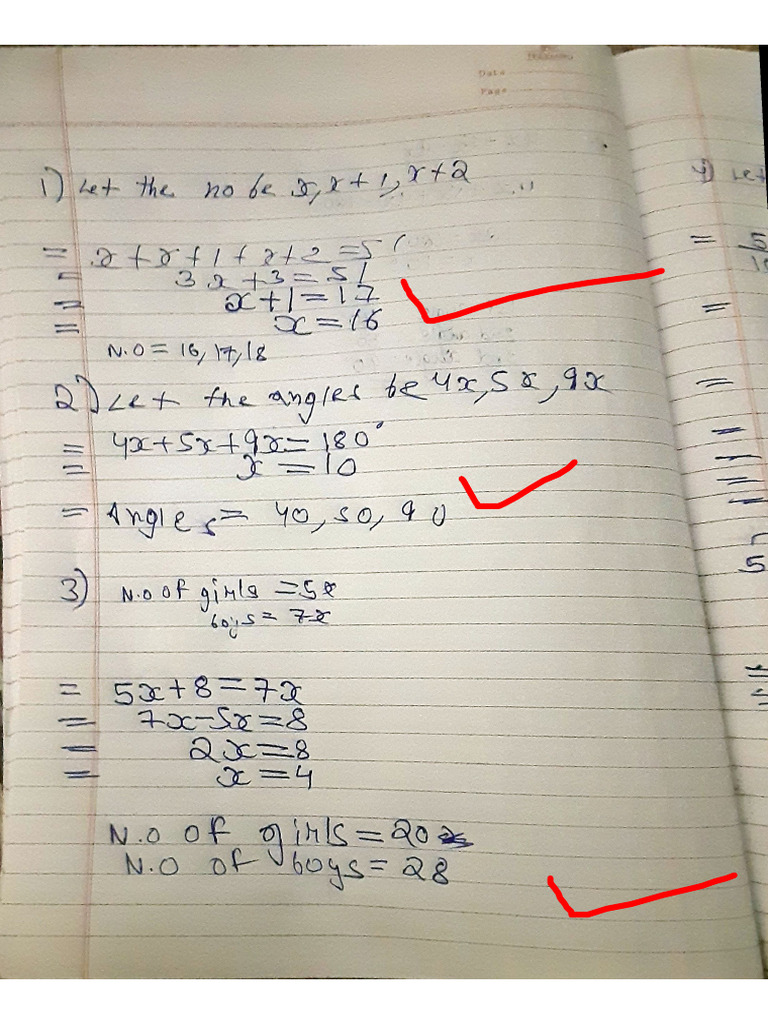 Date
Page
1) Let the no be x, x+1, x+2
= x+x+1+x+2=51
= 3x+3=51
= x+1=17
= x=16
N.O = 16, 17, 18
2) Let the angles be 4x, 5x, 9x
= 4x+5x+9x=180°
= x=10
= Angles = 40, 50, 90
3) N.O of girls = 5x
boys = 7x
= 5x+8=7x
= 7x-5x=8
= 2x=8
= x=4
N.O of girls = 20
N.O of boys = 28
4) Let
= 5
=
=
=
=
=
=
5